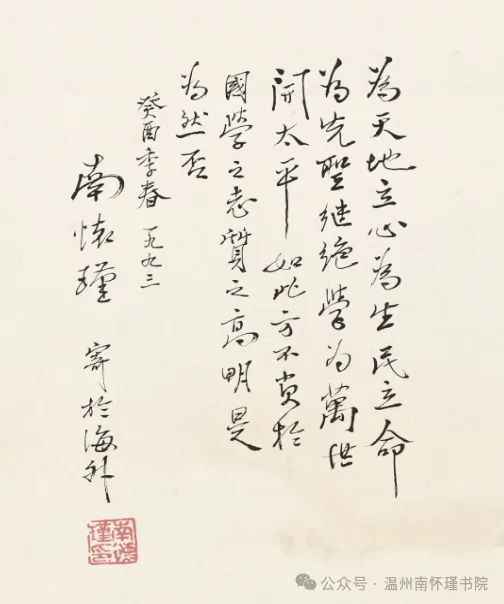 為天地立心為生民立命
為先聖継絕學為萬世
開太平如此方不負於
國學之志質之高明是
為然否
癸酉季春 一九九三
南怀瑾 寄於海外
南懷瑾印
公众号·温州南怀瑾书院